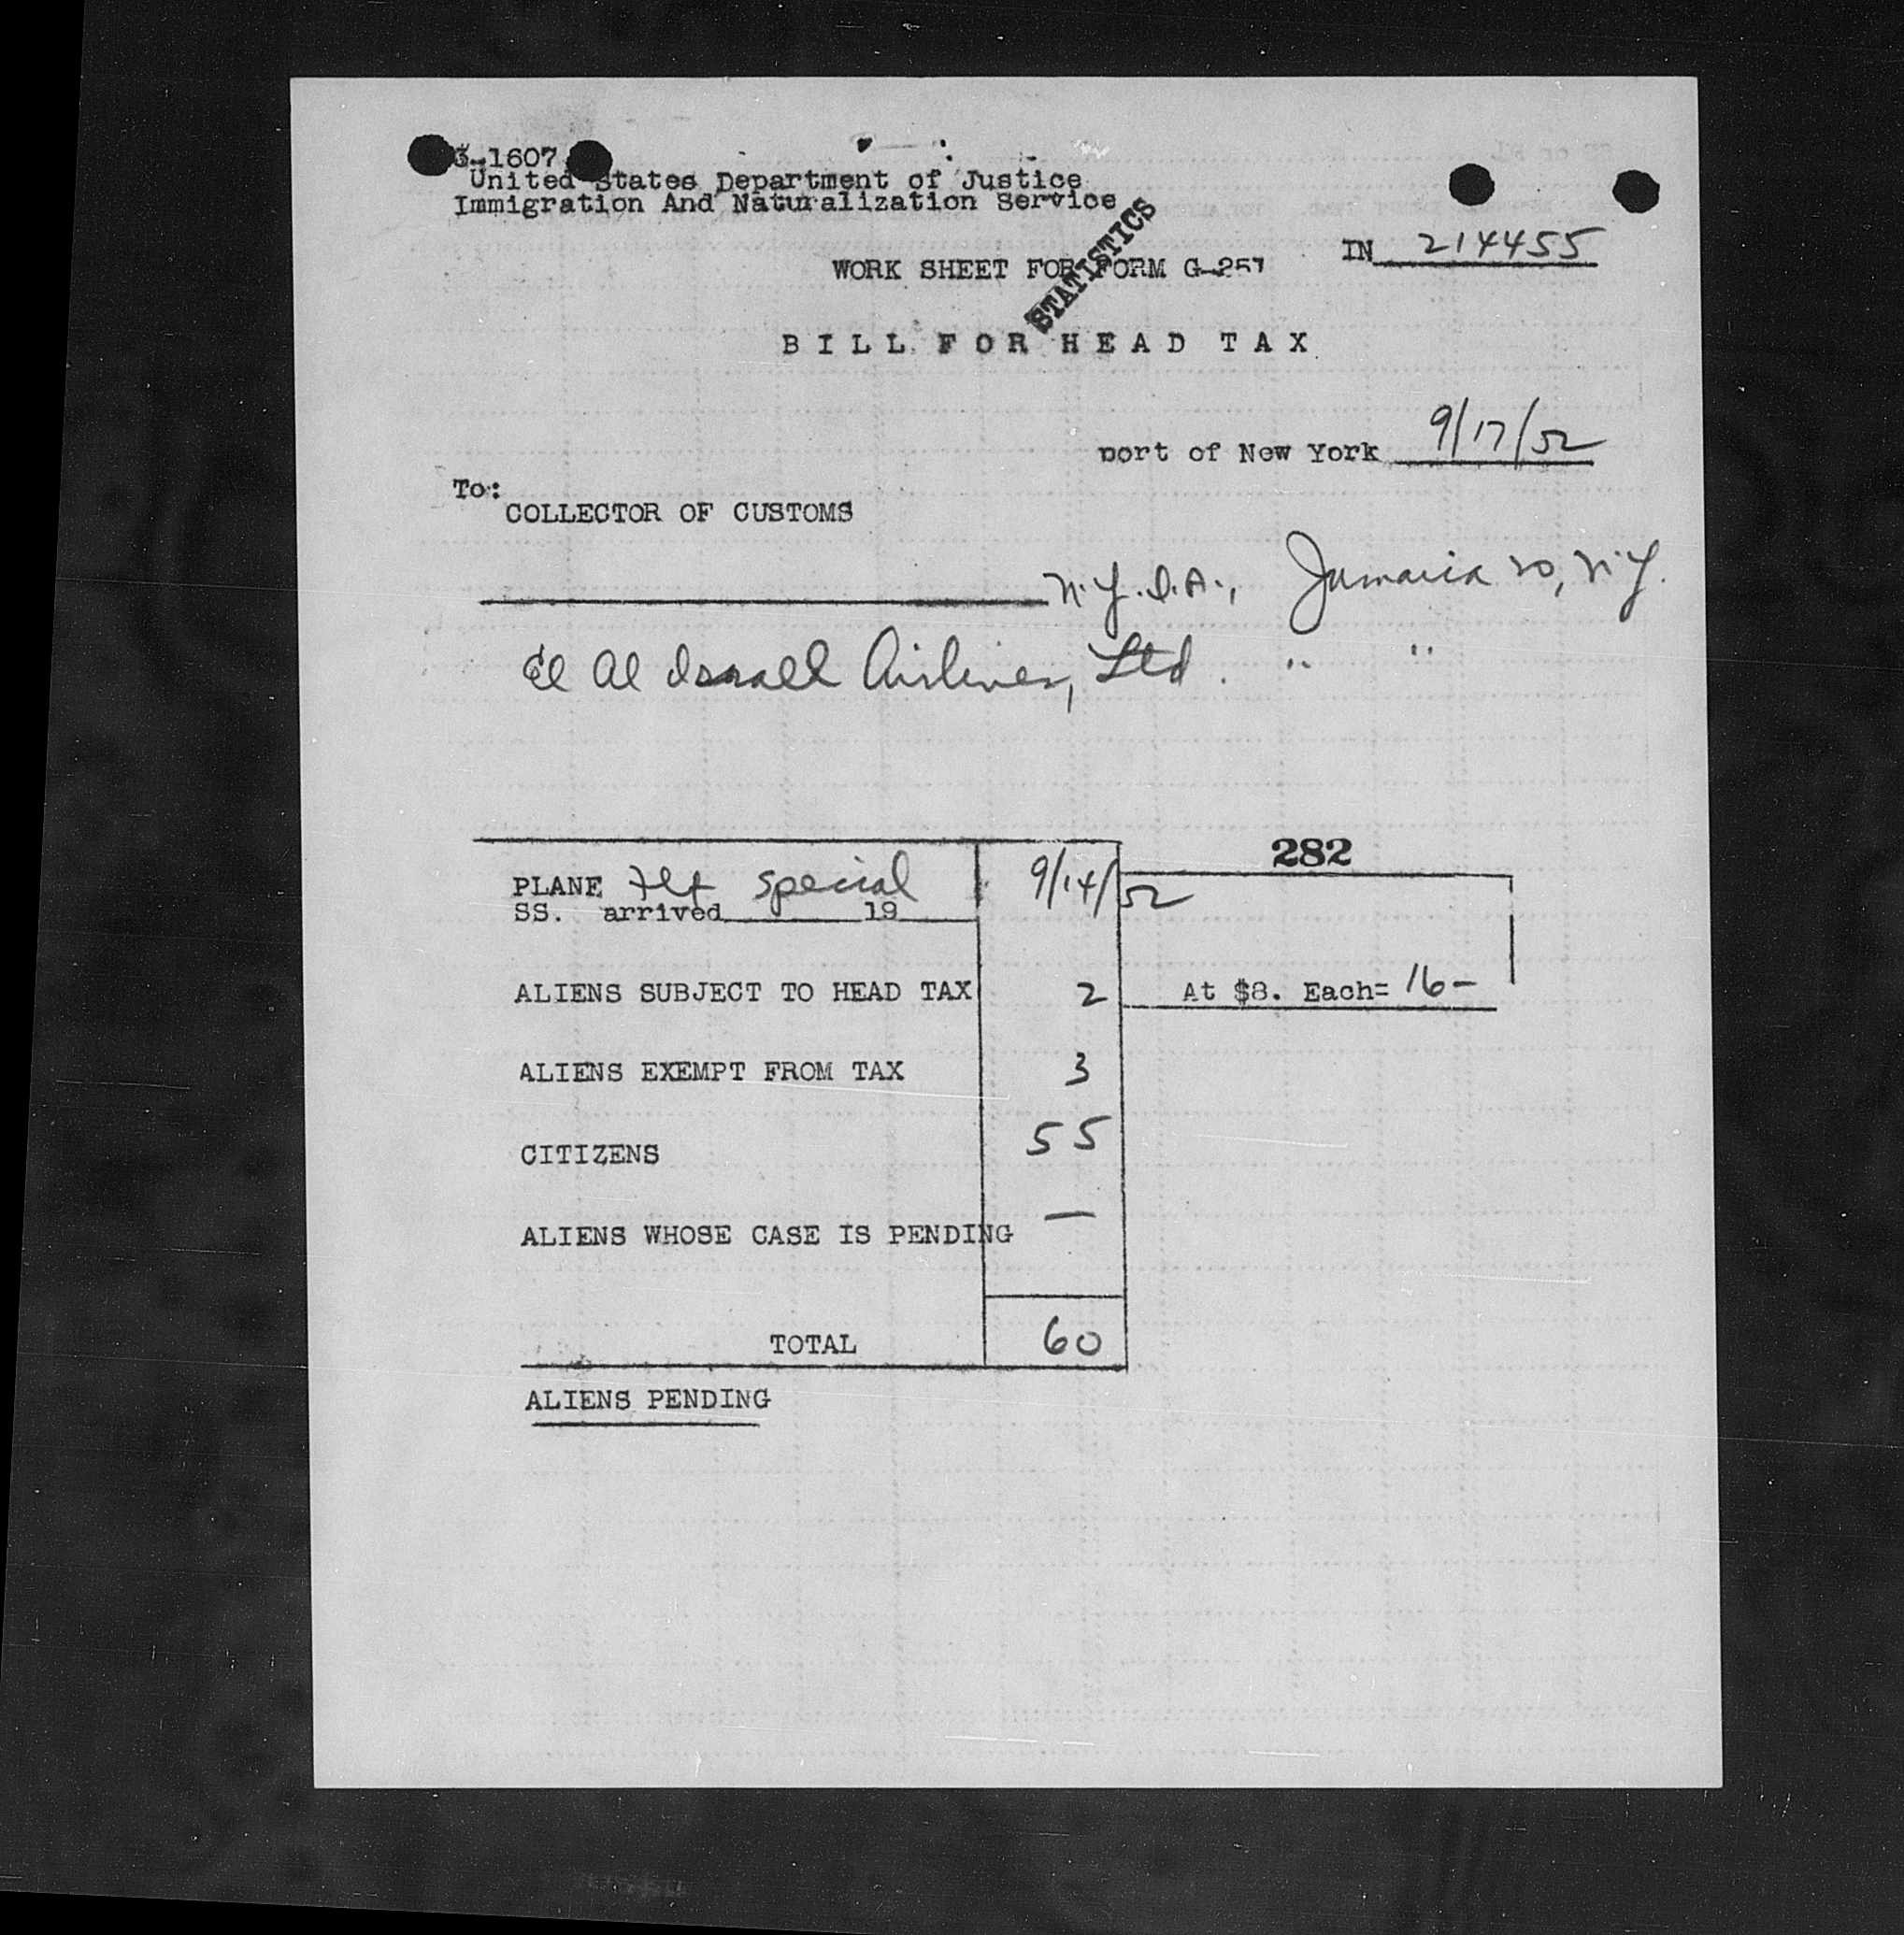 3-1607
United States Department of Justice
Immigration And Naturalization Service
STATISTICS
IN 214455
WORK SHEET FOR FORM G-257
BILL FOR HEAD TAX
port of New York 9/17/52
To:
COLLECTOR OF CUSTOMS
N.Y.I.A., Jamaica 20, N.Y.
El Al Israel Airlines, Ltd. " "
282
PLANE Flt special 9/14/52
SS. arrived 19
ALIENS SUBJECT TO HEAD TAX 2 At $8. Each= 16-
ALIENS EXEMPT FROM TAX 3
CITIZENS 55
ALIENS WHOSE CASE IS PENDING —
TOTAL 60
ALIENS PENDING